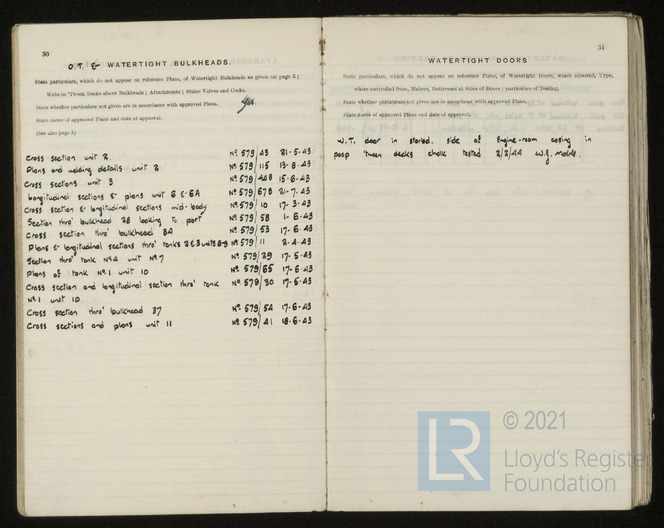 30
O.T. & WATERTIGHT BULKHEADS.
State particulars, which do not appear on reference Plans, of Watertight Bulkheads as given on page 5;
Write in 'Tween Decks above Bulkheads; Attachments; Sluice Valves and Cocks.
State whether particulars not given are in accordance with approved Plans. Yes.
State name of approved Plans and date of approval.
(See also page 5)
Cross section unit 2. Nº 579/43 21-5-43
Plans and welding details unit 2 Nº 579/115 13-8-43
Cross sections unit 3 Nº 579/ 15-6-43
Longitudinal sections & plans unit 6 & 6A Nº 579/67B 21-7-43
Cross section & longitudinal sections mid-body Nº 579/10 17-3-43
Section thro' bulkhead 28 looking to port Nº 579/58 1-6-43
Cross section thro' bulkhead 34 Nº 579/53 17-6-43
Plans & longitudinal sections thro' tanks 2 & 3 units 8-9 Nº 579/11 2-4-43
Section thro' tank Nº4 unit Nº7 Nº 579/29 17-5-43
Plans of tank Nº1 unit 10 Nº 579/65 17-6-43
Cross section and longitudinal section thro' tank Nº 579/30 17-5-43
Nº1 unit 10
Cross section thro' bulkhead 37 Nº 579/54 17-6-43
Cross sections and plans unit 11 Nº 579/41 18-6-43
31
WATERTIGHT DOORS
State particulars, which do not appear on reference Plans, of Watertight Doors, where situated, Type,
where controlled from, Makers, Buttresses at Sides of Doors; particulars of Testing.
State whether particulars not given are in accordance with approved Plans.
State name of approved Plans and date of approval.
W.T. door in starbd. side of Engine-room casing in
poop 'tween decks chalk tested 2/2/44
© 2021
LR
Lloyd's Register
Foundation